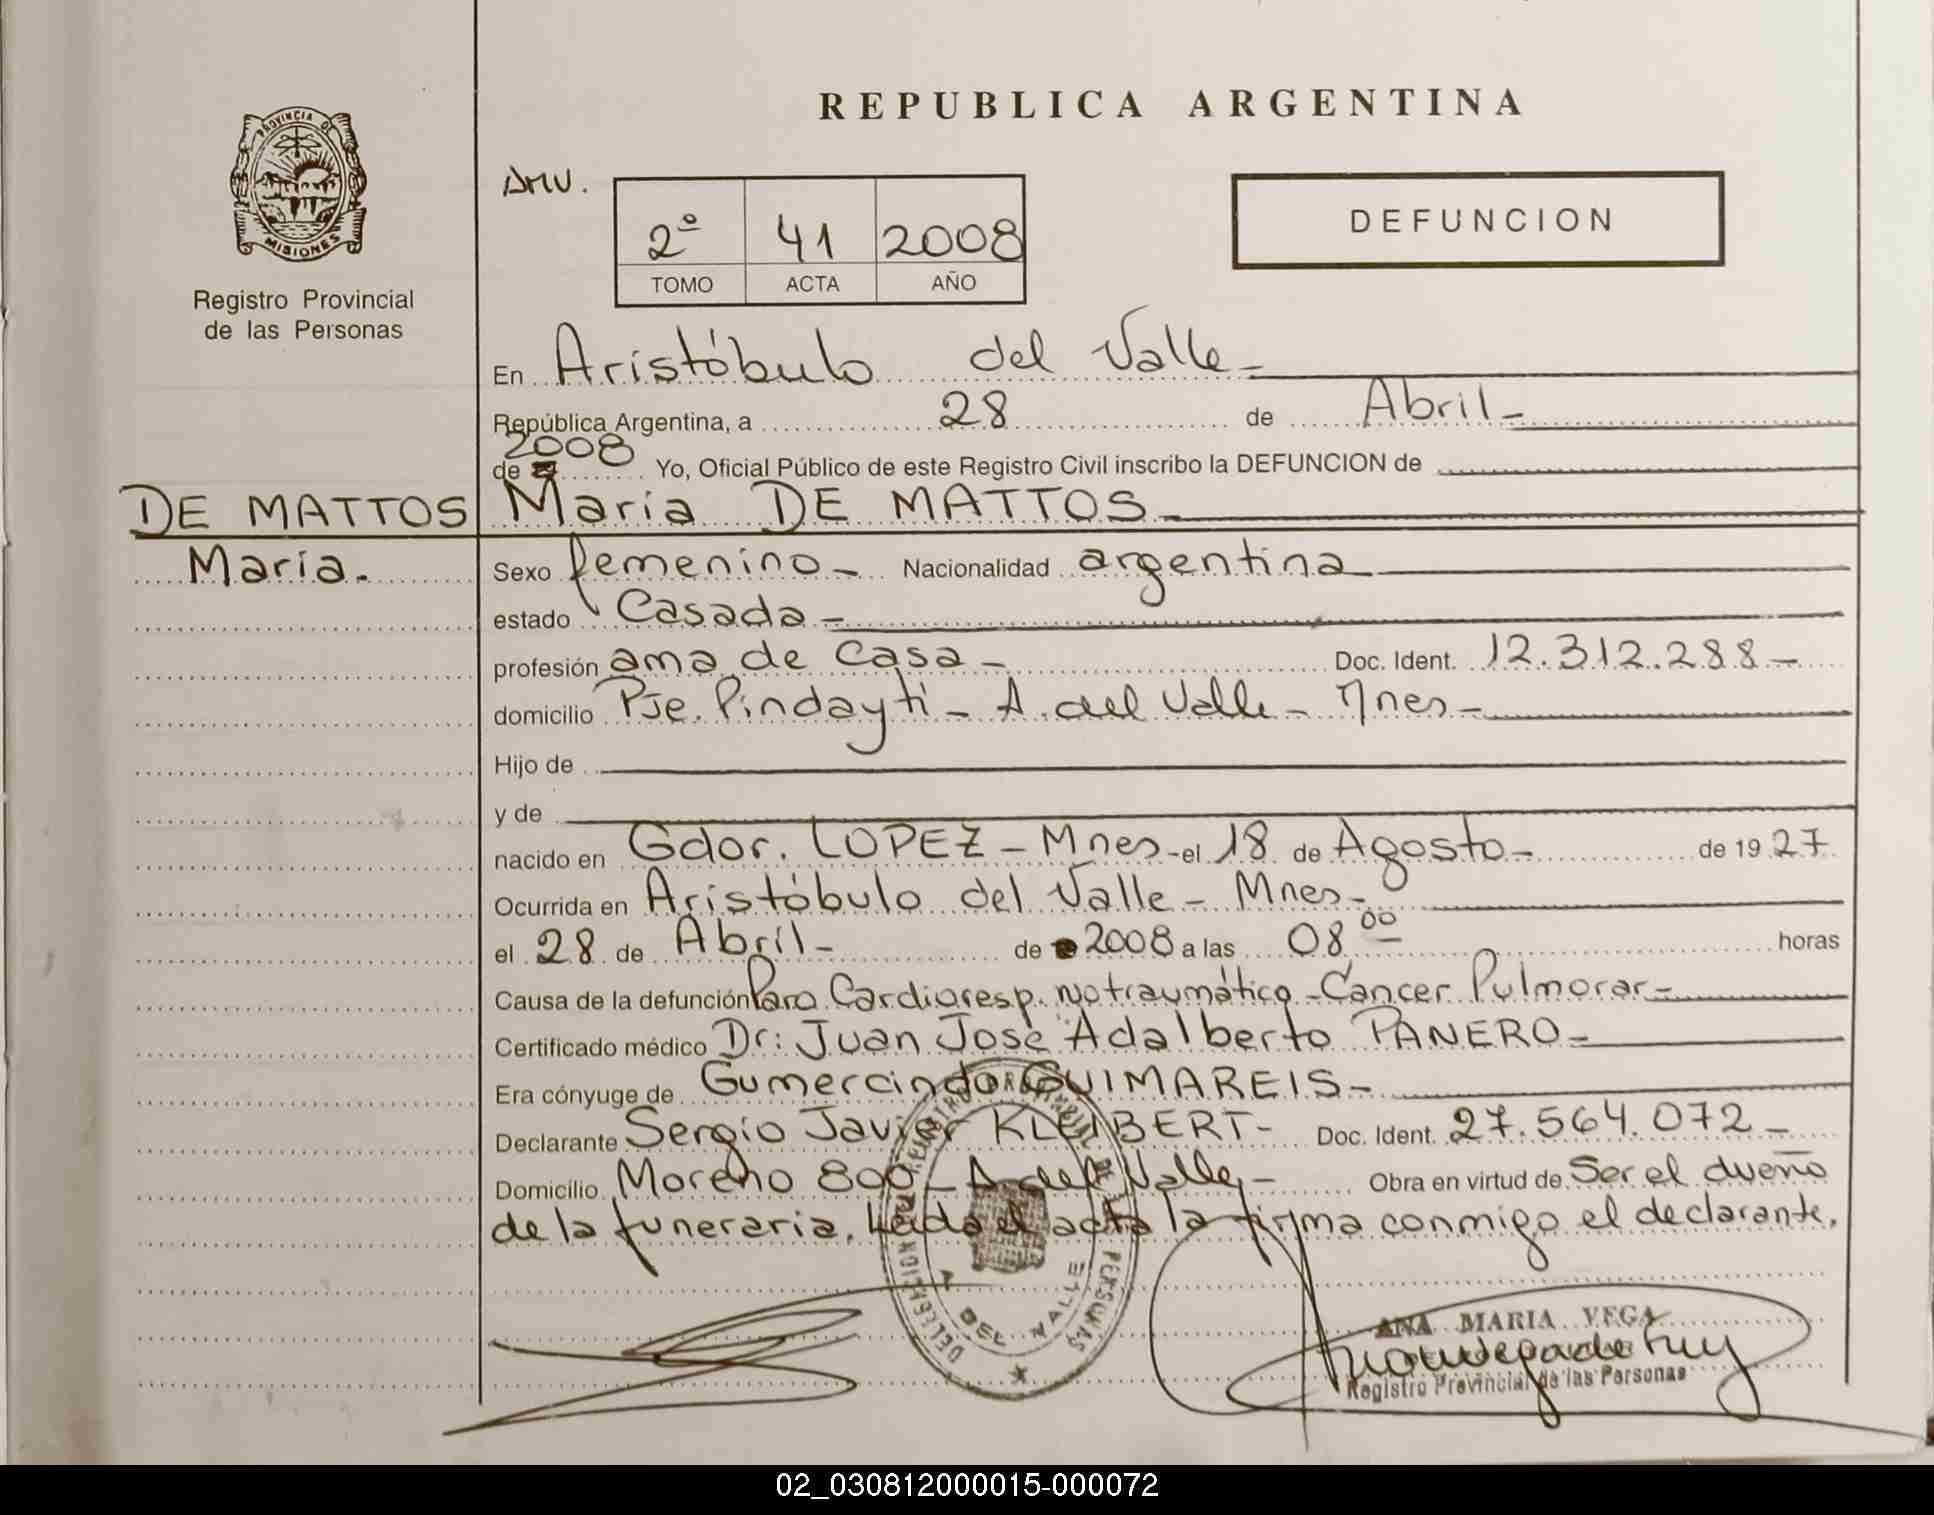 REPUBLICA ARGENTINA
PROVINCIA DE
MISIONES
Registro Provincial
de las Personas
AMV.
2º 41 2008
TOMO ACTA AÑO
DEFUNCION
En Aristóbulo del Valle-
República Argentina, a 28 de Abril-
de 2008 Yo, Oficial Público de este Registro Civil inscribo la DEFUNCION de
DE MATTOS
María.
María DE MATTOS-
Sexo femenino- Nacionalidad argentina
estado Casada-
profesión ama de casa- Doc. Ident. 12.312.288-
domicilio Pje. Pindayti- A. del Valle- Mnes-
Hijo de
y de
nacido en Gdor. LOPEZ- Mnes- el 18 de Agosto- de 1927
Ocurrida en Aristóbulo del Valle- Mnes-
el 28 de Abril- de 2008 a las 08 00 horas
Causa de la defunción Paro Cardioresp. no traumático-Cancer Pulmorar-
Certificado médico Dr: Juan José Adalberto PANERO-
Era cónyuge de Gumercindo GUIMAREIS-
Declarante Sergio Javier KLEIBERT- Doc. Ident. 27.564.072-
Domicilio Moreno 800- A del Valle- Obra en virtud de Ser el dueño
de la funeraria. Leída el acta la firma conmigo el declarante.
DELEGACION
PERSONAS
A DEL VALLE
ANA MARIA VEGA
Registro Provincial de las Personas
02_030812000015-000072